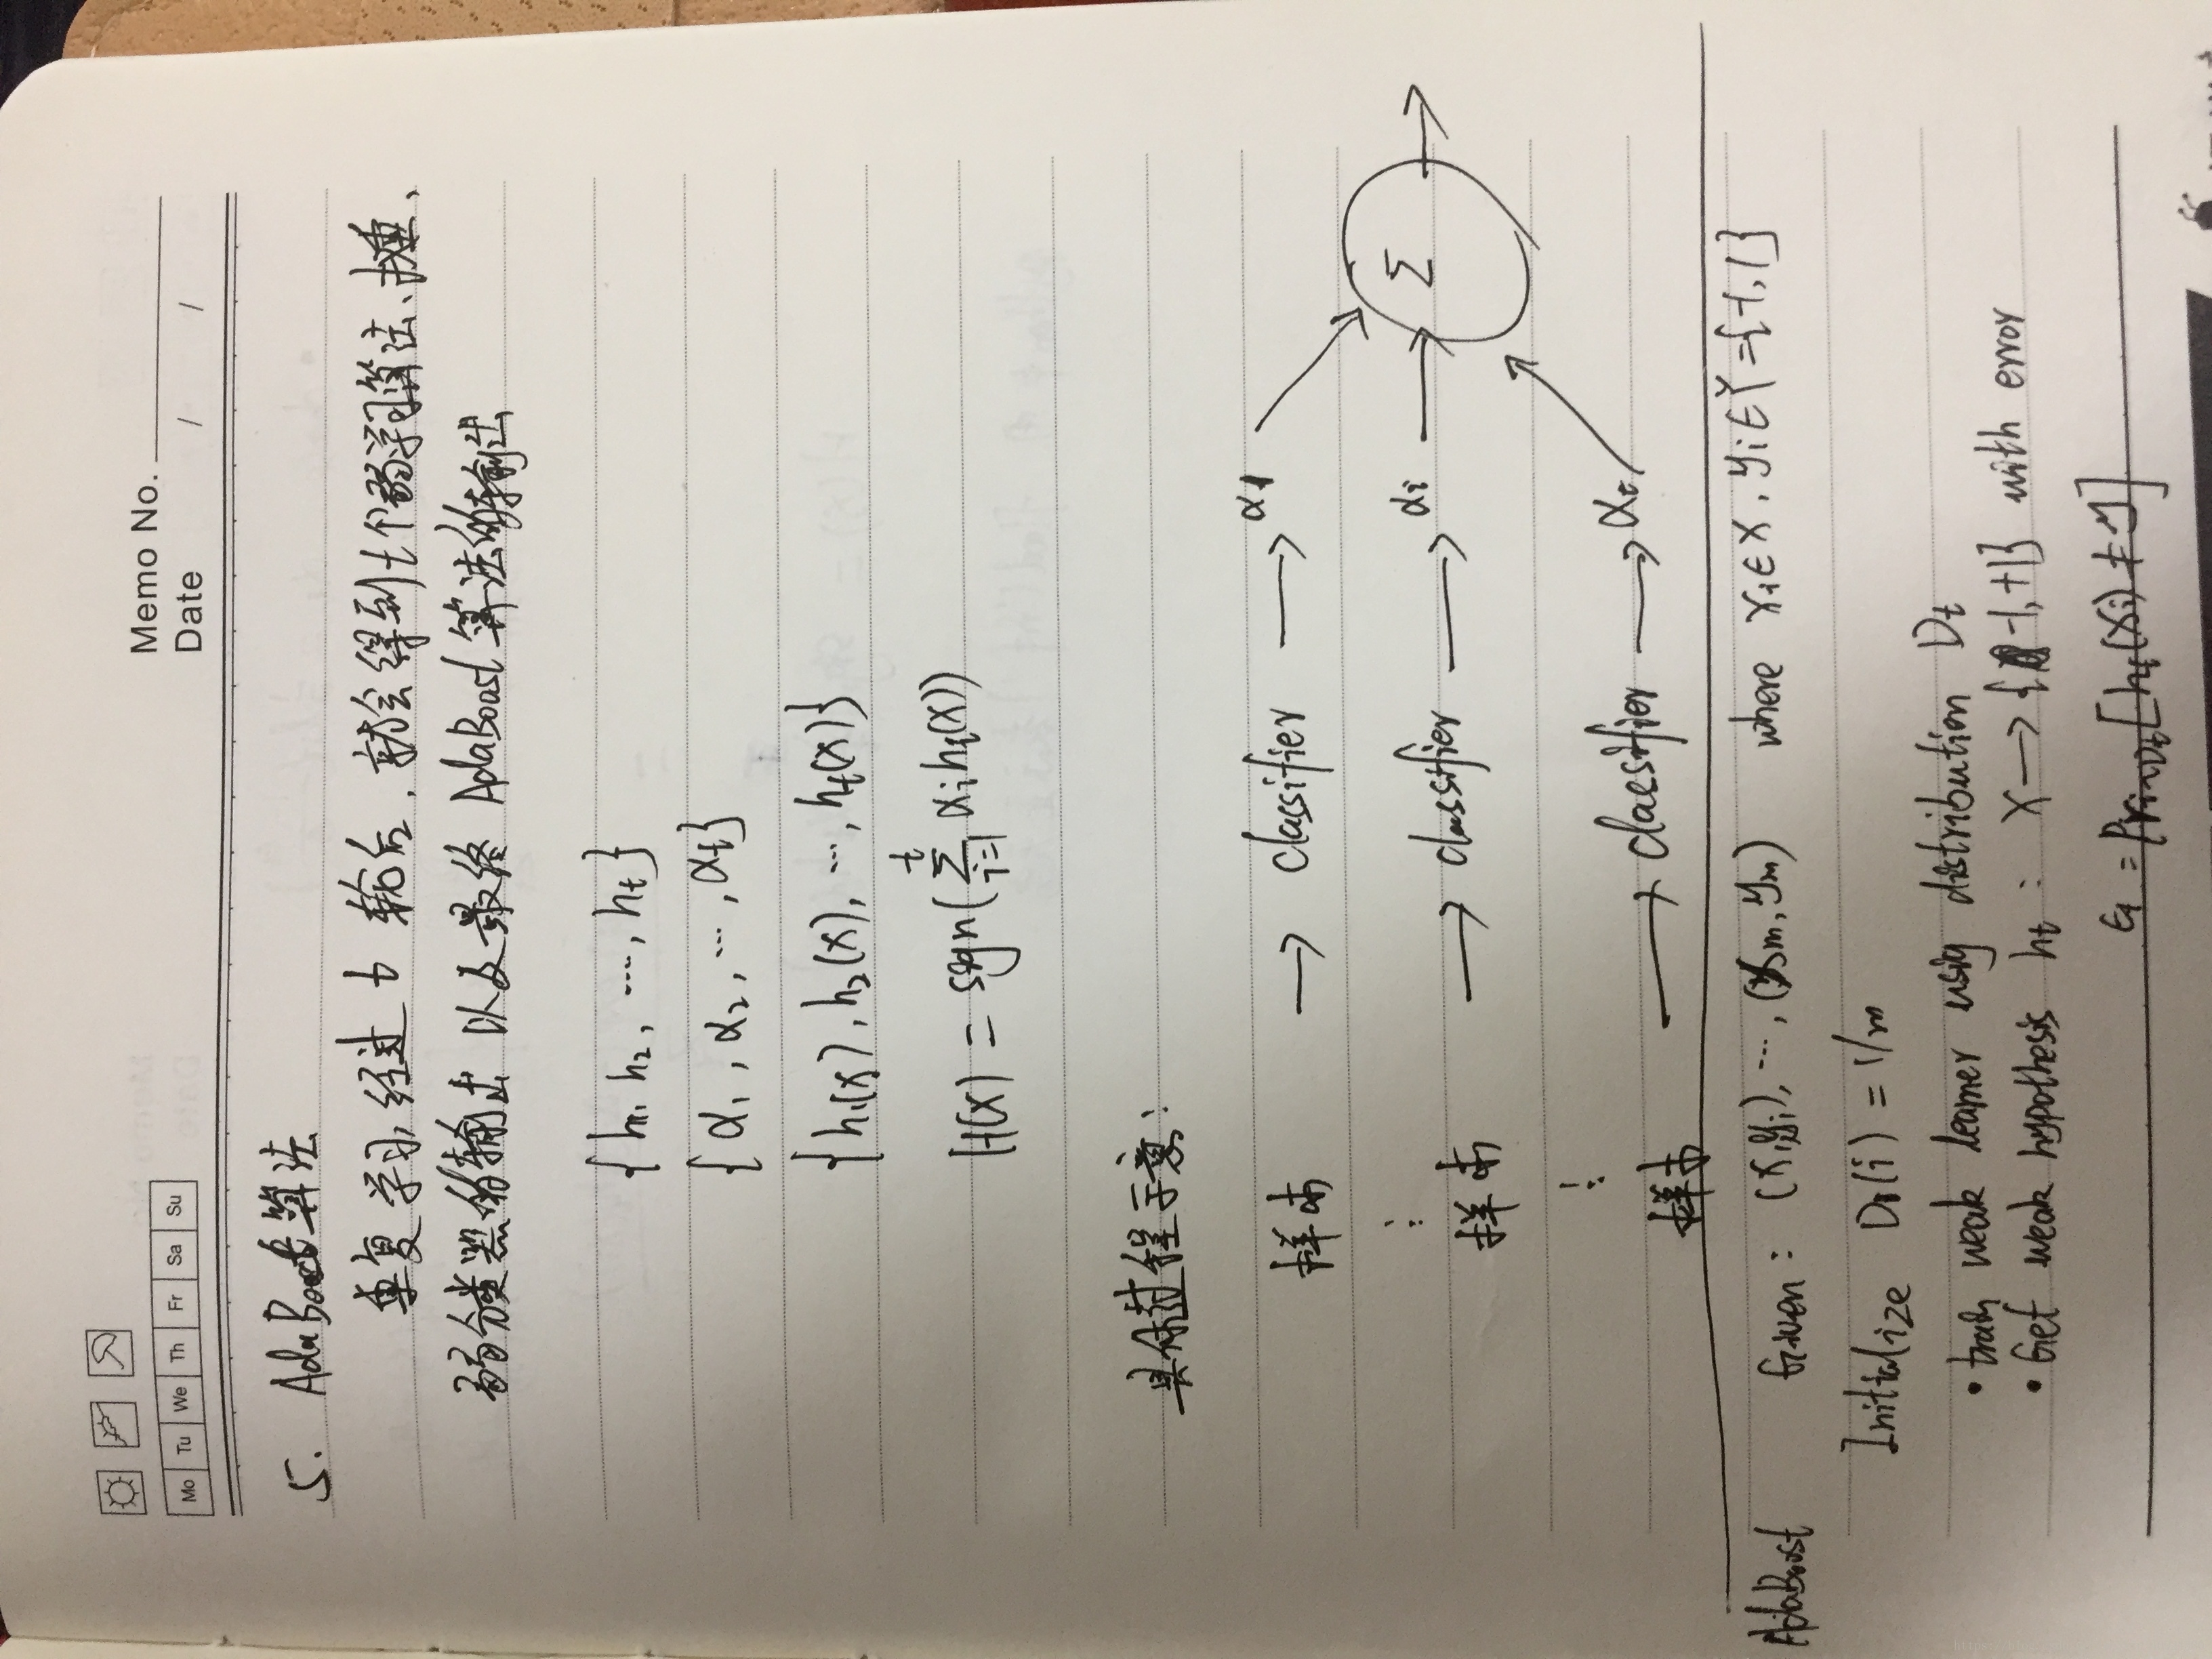 Memo No.
Mo Tu We Th Fr Sa Su
Date / /
5. AdaBoost算法
重复学习,经过t轮后,就会得到t个弱学习算法、权重、
弱分类器的输出以及最终AdaBoost算法的输出
{h1, h2, ..., ht}
{α1, α2, ..., αt}
{h1(x), h2(x), ..., ht(x)}
H(x) = sgn(∑_{i=1}^{t} αihi(x))
具体过程示意:
样本 → classifier → α1
⋮
样本 → classifier → αi → Σ →
⋮
样本 → classifier → αt
AdaBoost Given: (x1,y1), ..., (xm,ym) where xi∈X, yi∈Y={-1,1}
Initialize D1(i) = 1/m
• train weak learner using distribution Dt
• Get weak hypothesis ht: X → {-1,+1} with error
εt = Pri~Dt[ht(xi)≠yi]